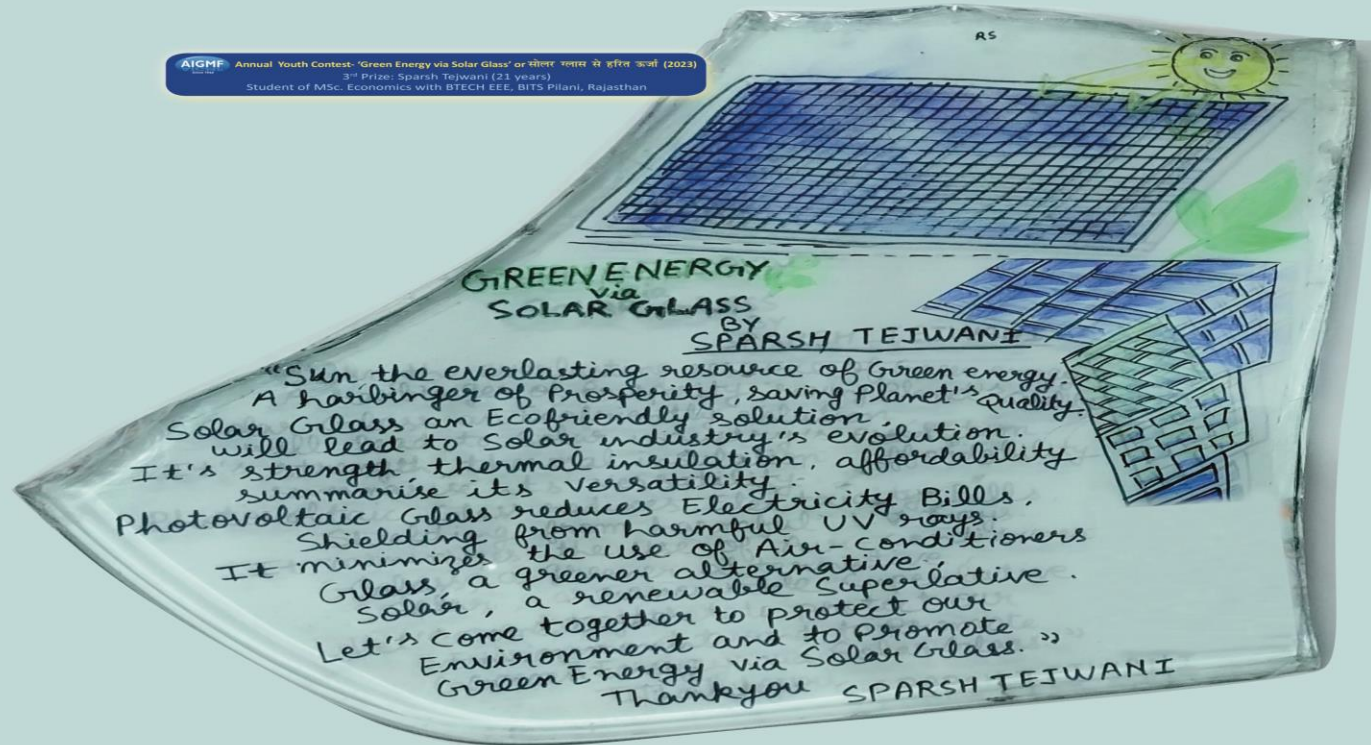 AIGMF Annual Youth Contest- 'Green Energy via Solar Glass' or सोलर ग्लास से हरित ऊर्जा (2023)
Since 1944
3rd Prize: Sparsh Tejwani (21 years)
Student of MSc. Economics with BTECH EEE, BITS Pilani, Rajasthan
RS
GREEN ENERGY
via
SOLAR GLASS
BY
SPARSH TEJWANI
"Sun, the everlasting resource of Green energy.
A harbinger of Prosperity, saving Planet's Quality.
Solar Glass an Ecofriendly solution,
will lead to Solar industry's evolution.
It's strength, thermal insulation, affordability
summarise its versatility.
Photovoltaic Glass reduces Electricity Bills,
Shielding from harmful UV rays.
It minimizes the use of Air-Conditioners
Glass, a greener alternative,
Solar, a renewable Superlative.
Let's come together to protect our
Environment and to promote
Green Energy via Solar Glass."
Thankyou SPARSH TEJWANI